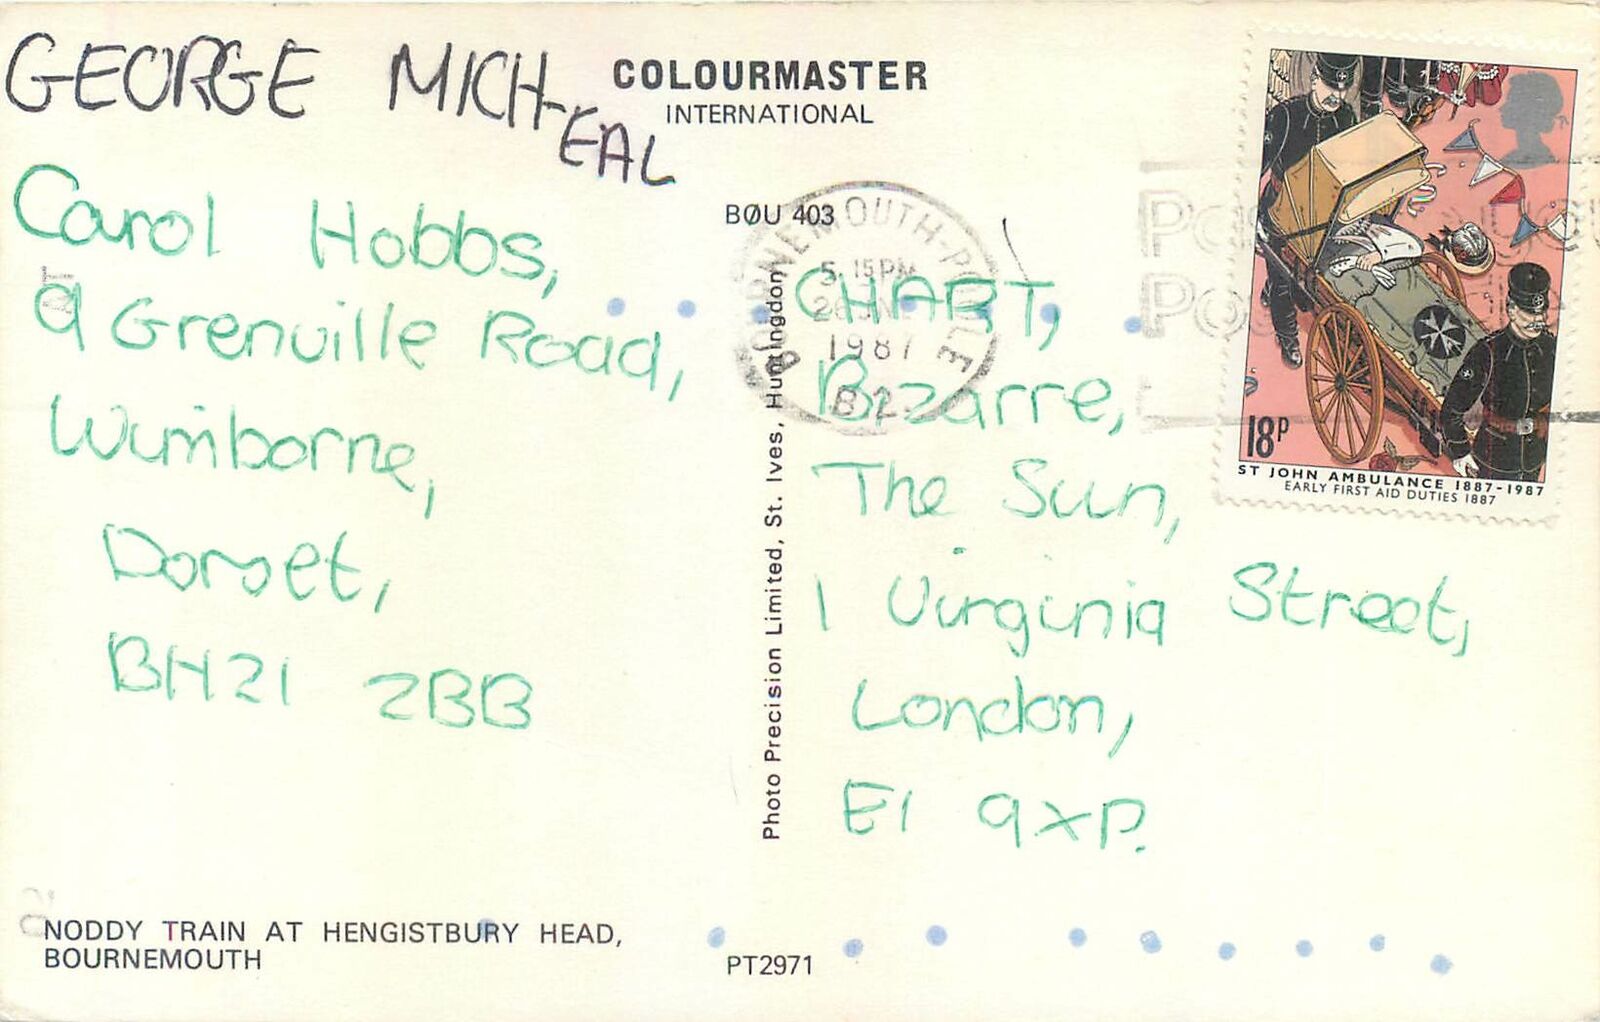 GEORGE MICH-
EAL
Carol Hobbs,
9 Grenville Road,
Wimborne,
Dorset,
BH21 2BB
NODDY TRAIN AT HENGISTBURY HEAD,
BOURNEMOUTH
COLOURMASTER
INTERNATIONAL
BØU 403
Photo Precision Limited, St. Ives, Huntingdon
PT2971
BOURNEMOUTH-POOLE
5.15PM
1987
CHART,
Bizarre,
The Sun,
1 Virginia Street,
London,
E1 9XP.
18P
ST JOHN AMBULANCE 1887-1987
EARLY FIRST AID DUTIES 1887